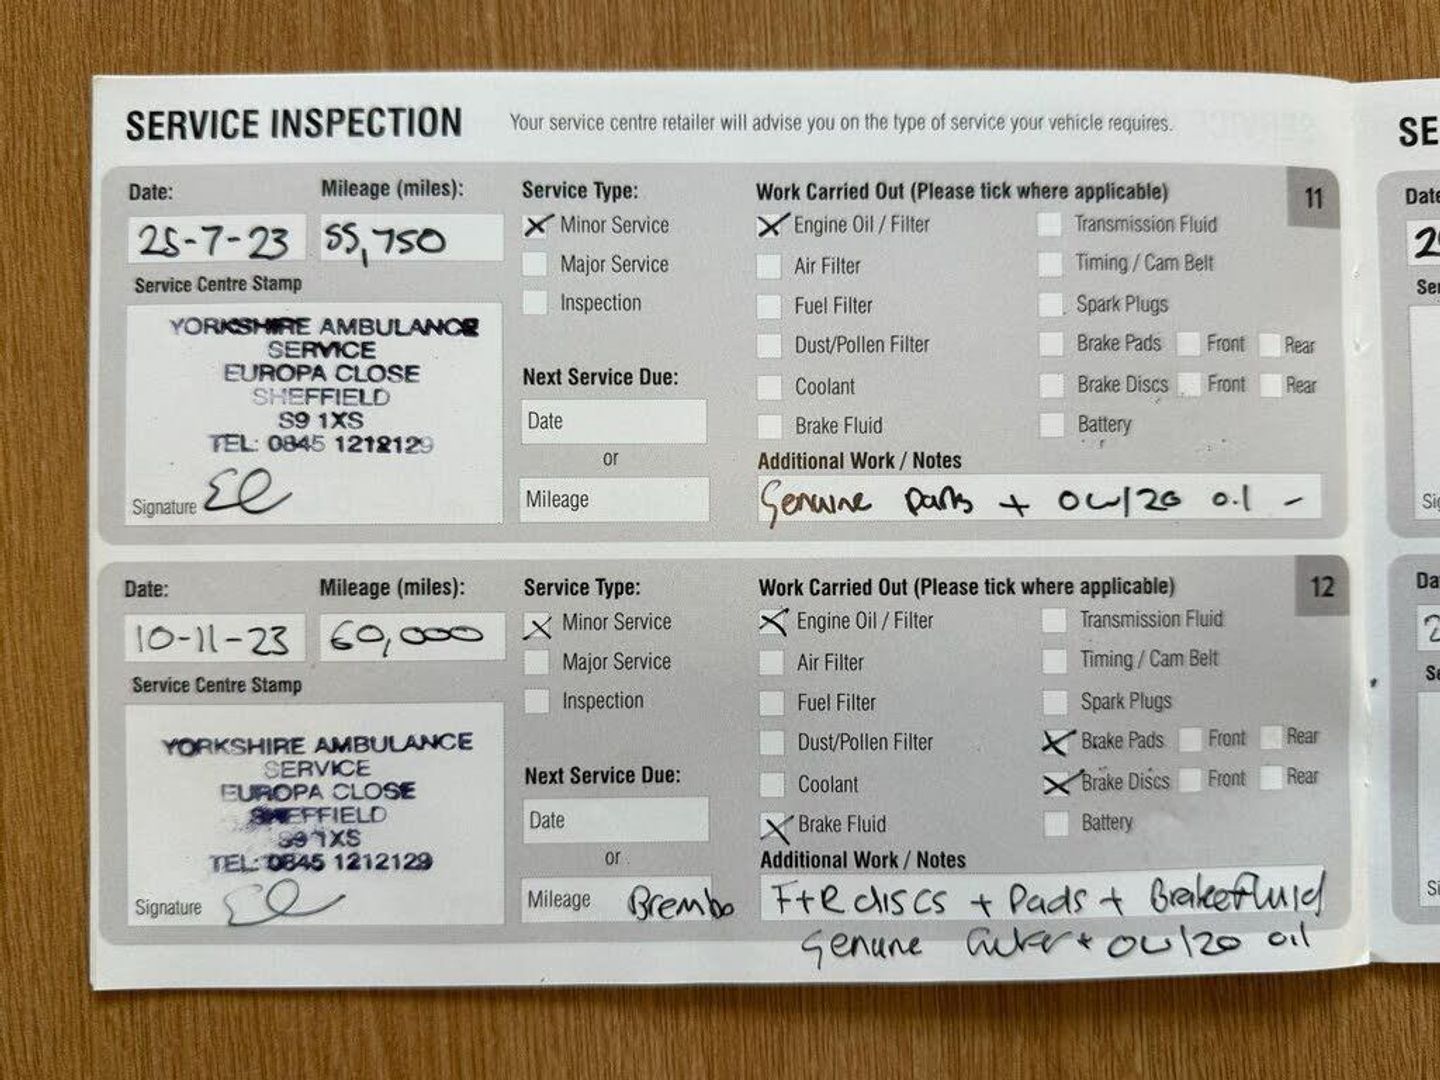 SERVICE INSPECTION Your service centre retailer will advise you on the type of service your vehicle requires.
11
Date: Mileage (miles):
25-7-23 55,750
Service Centre Stamp
YORKSHIRE AMBULANCE
SERVICE
EUROPA CLOSE
SHEFFIELD
S9 1XS
TEL: 0845 1212129
Signature
Service Type:
Minor Service
Major Service
Inspection
Next Service Due:
Date
or
Mileage
Work Carried Out (Please tick where applicable)
Engine Oil / Filter Transmission Fluid
Air Filter Timing / Cam Belt
Fuel Filter Spark Plugs
Dust/Pollen Filter Brake Pads Front Rear
Coolant Brake Discs Front Rear
Brake Fluid Battery
Additional Work / Notes
Genuine parts + 0W/20 oil -
12
Date: Mileage (miles):
10-11-23 60,000
Service Centre Stamp
YORKSHIRE AMBULANCE
SERVICE
EUROPA CLOSE
SHEFFIELD
S9 1XS
TEL: 0845 1212129
Signature
Service Type:
Minor Service
Major Service
Inspection
Next Service Due:
Date
or
Mileage
Work Carried Out (Please tick where applicable)
Engine Oil / Filter Transmission Fluid
Air Filter Timing / Cam Belt
Fuel Filter Spark Plugs
Dust/Pollen Filter Brake Pads Front Rear
Coolant Brake Discs Front Rear
Brake Fluid Battery
Additional Work / Notes
Brembo F+R discs + Pads + Brake fluid
Genuine + 0W/20 oil
SE
Date